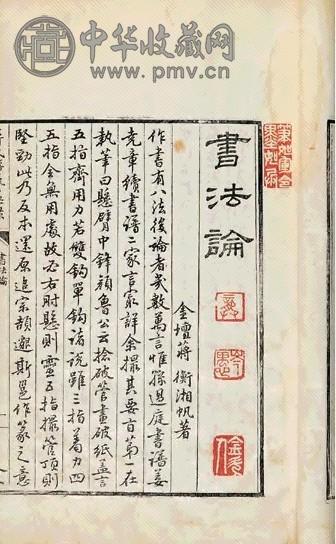 中华收藏网
www.pmv.cn
書法論
金壇蔣衡湘帆著
作書有八法後論者或數萬言惟孫過庭書譜姜
堯章續書譜二家言最詳余撮其要言第一在
執筆曰懸臂中鋒顏魯公云捻破管畫破紙蓋言
五指齊用力若雙鉤單鉤諸說雖三指着力四
五指全無用處故必右肘懸則靈五指撮管頂則
堅勁此乃反本還原追宗頡邈斯邕作篆之意
書法論